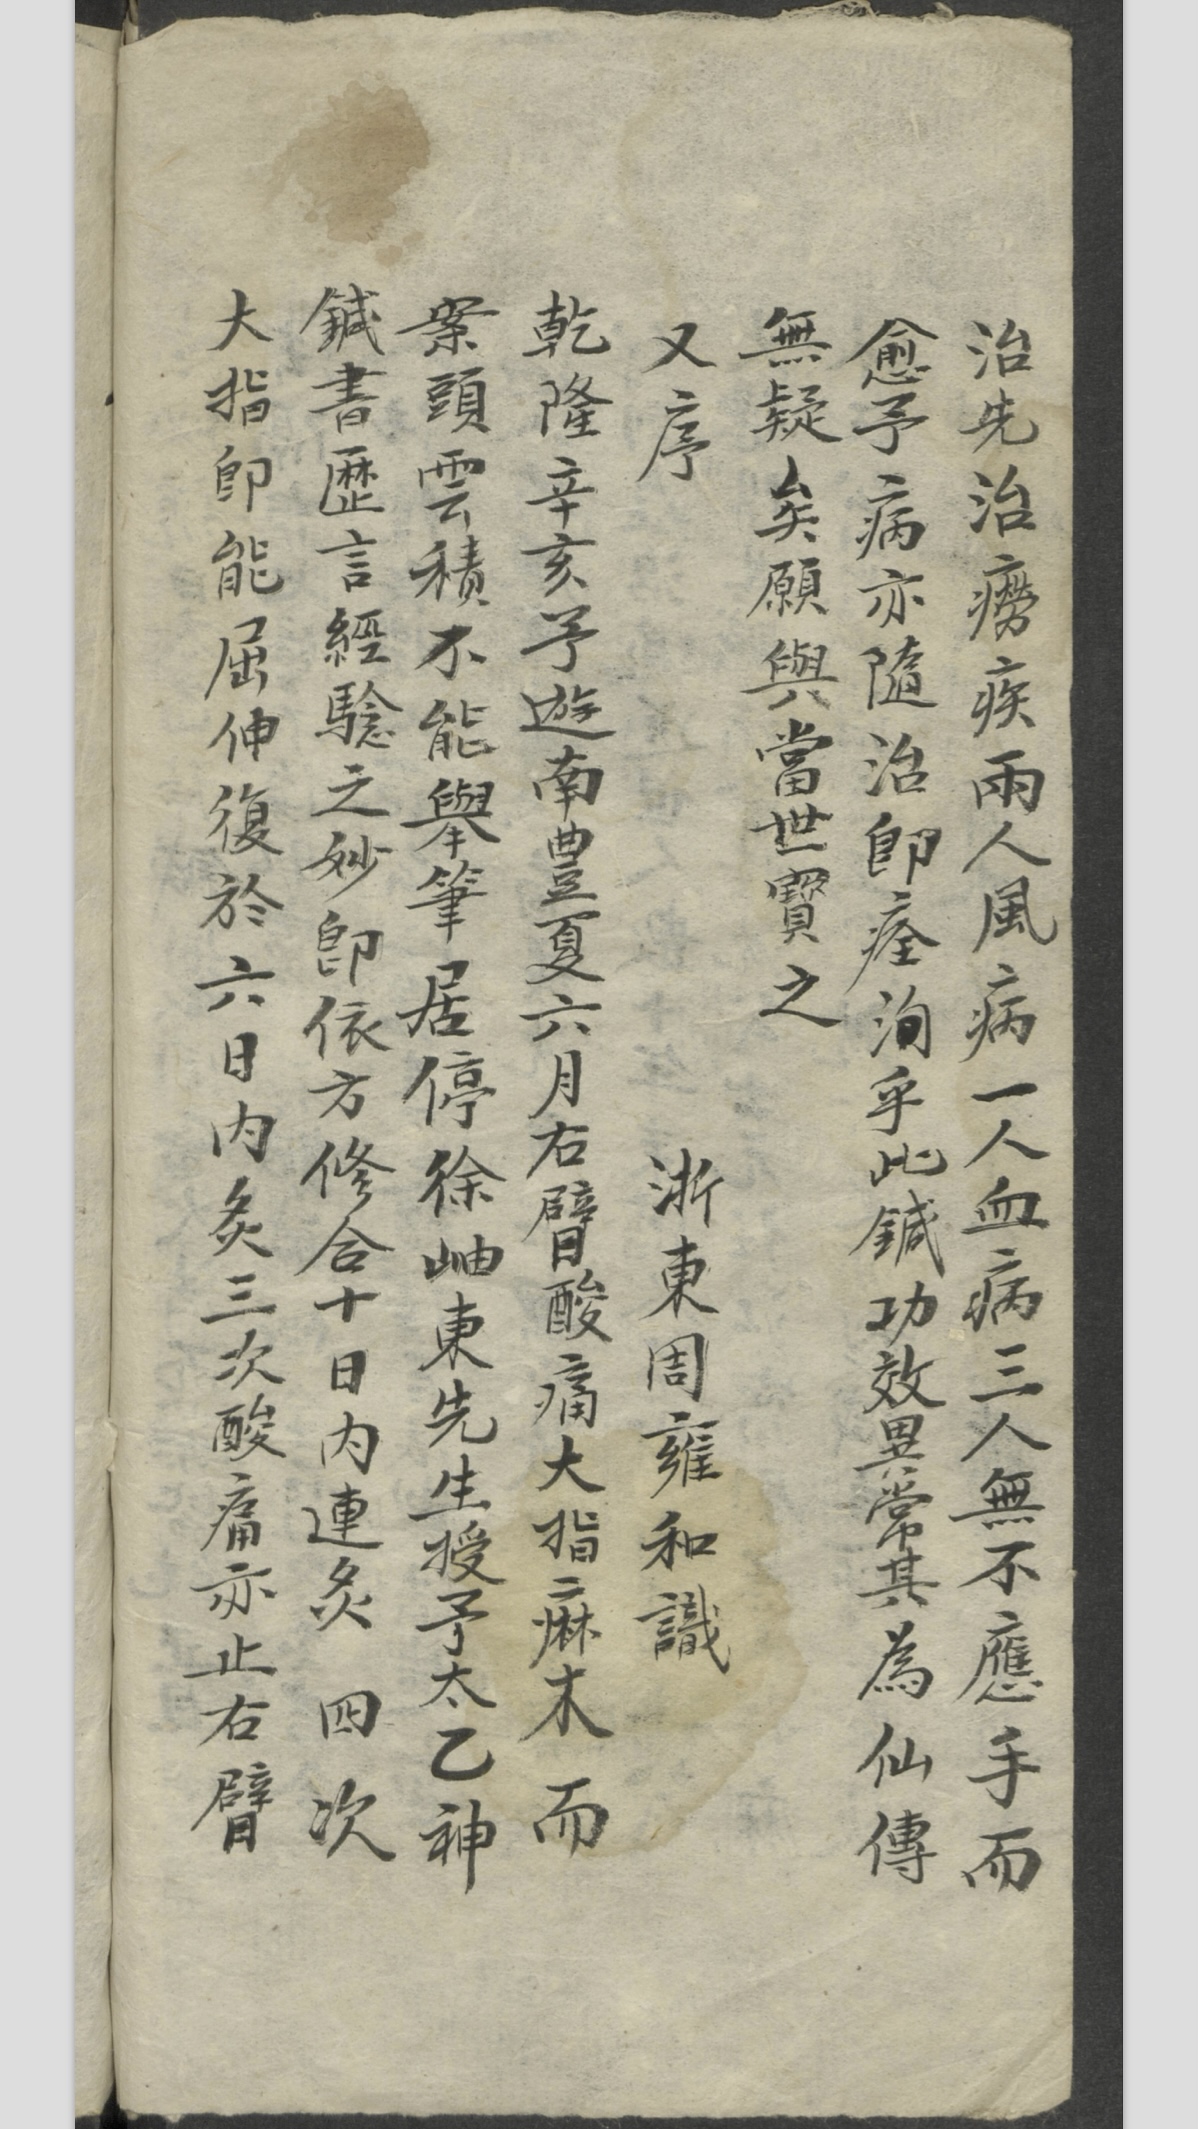 治先治癆疾兩人風病一人血病三人無不應手而
愈予病亦隨治即痊洵乎此鍼功效異常其為仙傳
無疑矣願與當世寳之
又序 浙東周雍和識
乾隆辛亥予遊南豊夏六月右臂酸痛大指痳木而
案頭雲積不能舉筆居停徐岫東先生授予太乙神
鍼書歷言經騐之妙即依方修合十日内連灸四次
大指即能屈伸復於六日内灸三次酸痛亦止右臂